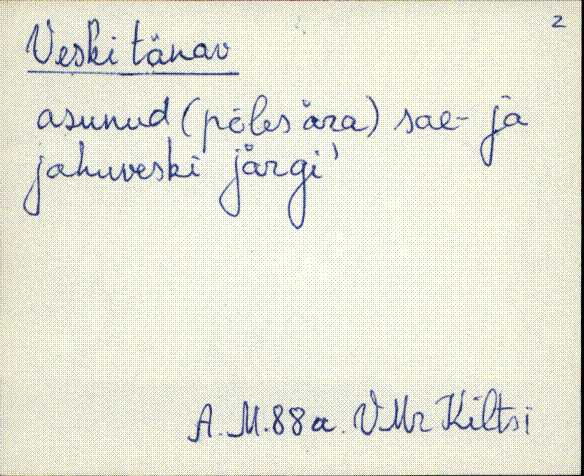 2
Veski tänav
asunud (põles ära) sae- ja
jahuveski järgi'
A. M. 88 a. VMr Kiltsi